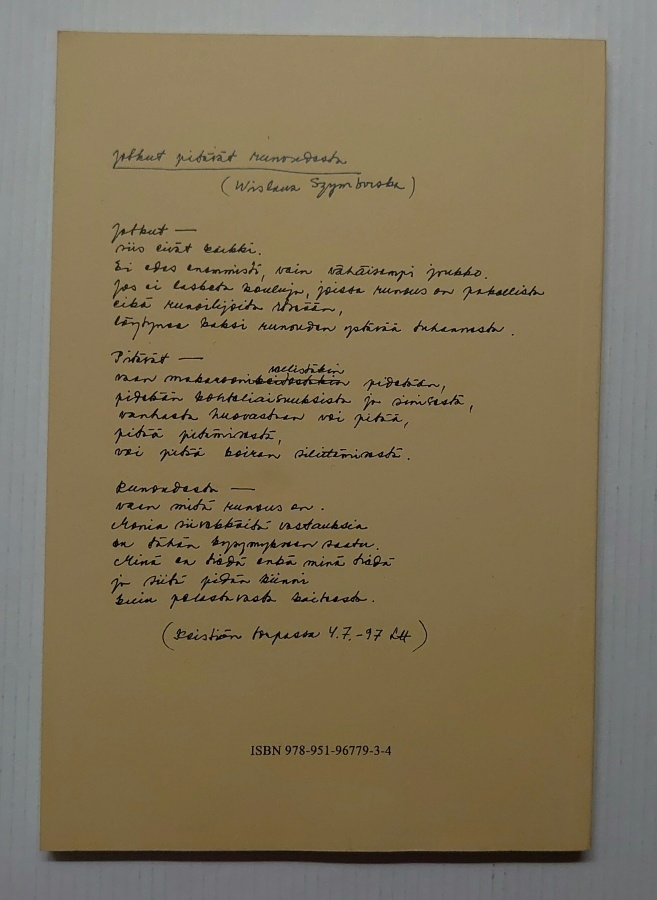 Jotkut pitävät runoudesta
(Wislawa Szymborska)
Jotkut —
siis eivät kaikki.
Ei edes enemmistö, vain vähäisempi joukko.
Jos ei lasketa kouluja, joissa runous on pakollista
eikä runoilijoita itseään,
löytynee kaksi runouden ystävää tuhannesta.
Pitävät —
vaan makaroni pidetään,
pidetään kohteliaisuuksista ja sinisestä,
vanhasta huovastaan voi pitää,
pitää pitämisestä,
voi pitää koiran silittämisestä.
Runoudesta —
vaan mitä runous on.
Monia vastauksia
on tähän kysymykseen saatu.
Minä en tiedä enkä minä tiedä
ja siitä pidän kiinni
kuin pelastavasta kaiteesta.
( torpassa 4.7.-97 LH)
ISBN 978-951-96779-3-4